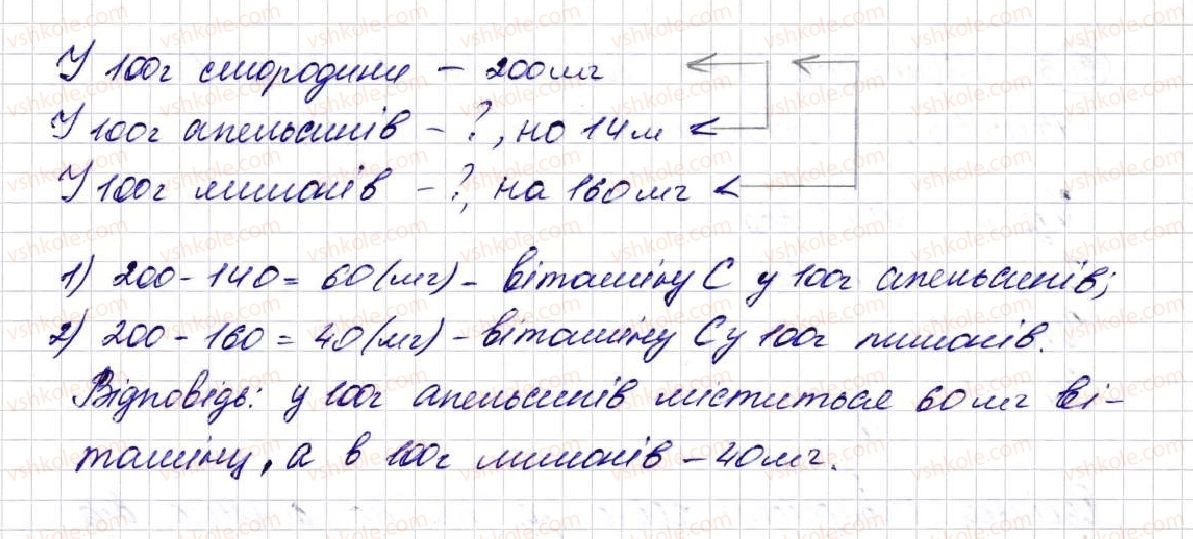 У 100г смородини – 200мг
У 100г апельсинів – ?, но 14м <
У 100г лимонів – ?, на 160мг <
1) 200 - 140 = 60 (мг) – вітаміну С у 100г апельсинів;
2) 200 - 160 = 40 (мг) – вітаміну С у 100г лимонів.
Відповідь: у 100г апельсинів міститься 60мг ві-
таміну, а в 100г лимонів – 40мг.
vshkole.com